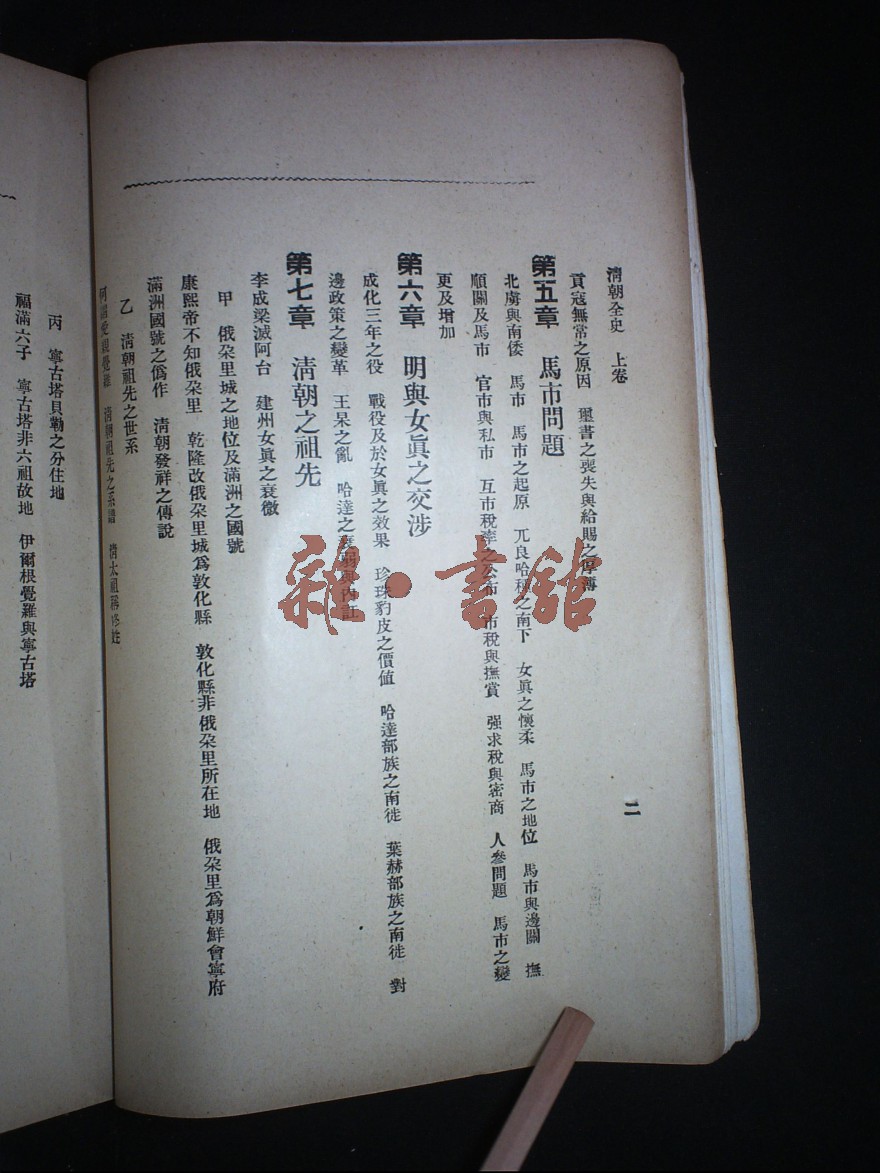 清朝全史 上卷
二
貢寇無常之原因 璽書之喪失與給賜之厚薄
第五章 馬市問題
北虜與南倭 馬市 馬市之起原 兀良哈種之南下 女眞之懷柔 馬市之地位 馬市與邊關 撫
順關及馬市 官市與私市 互市稅率之公布 市稅與撫賞 强求稅與密商 人參問題 馬市之變
更及增加
第六章 明與女眞之交涉
成化三年之役 戰役及於女眞之效果 珍珠豹皮之價値 哈達部族之南徙 葉赫部族之南徙 對
邊政策之變革 王杲之亂 哈達之衰弱與內訌
第七章 清朝之祖先
李成梁滅阿台 建州女眞之衰微
甲 俄朶里城之地位及滿洲之國號
康熙帝不知俄朶里 乾隆改俄朶里城爲敦化縣 敦化縣非俄朶里所在地 俄朶里爲朝鮮會寧府
滿洲國號之僞作 清朝發祥之傳說
乙 清朝祖先之世系
何謂愛親覺羅 清朝祖先之系譜 太祖
丙 寧古塔貝勒之分住地
福滿六子 寧古塔非六祖故地 伊爾根覺羅與寧古塔
雜·書館